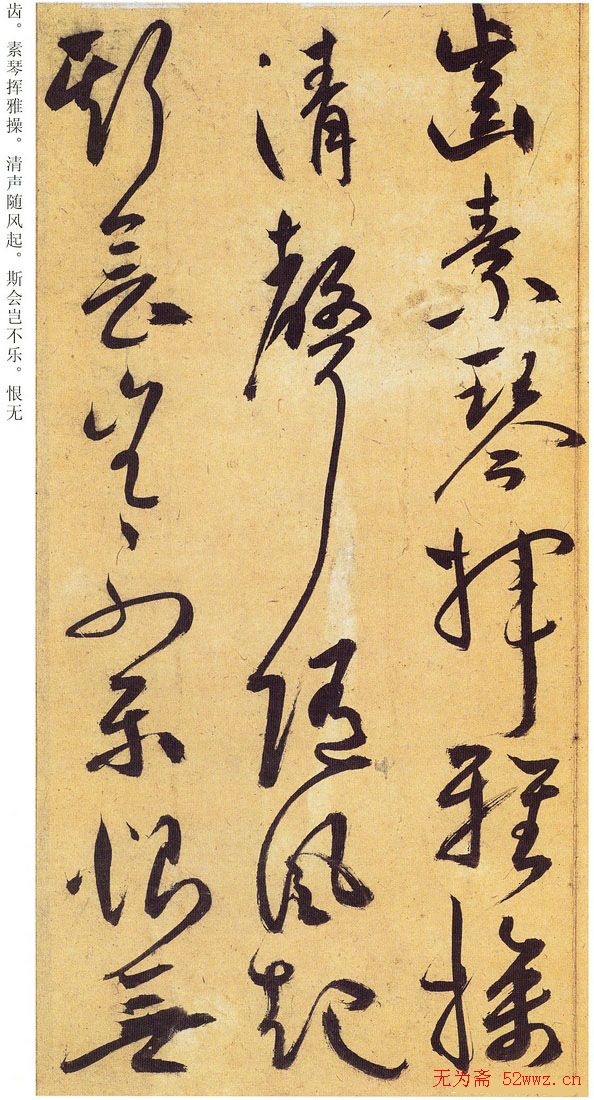 齿素琴挥雅操
清声随风起
斯会岂不乐恨无
齿。素琴挥雅操。清声随风起。斯会岂不乐。恨无
无为斋 52wwz.cn